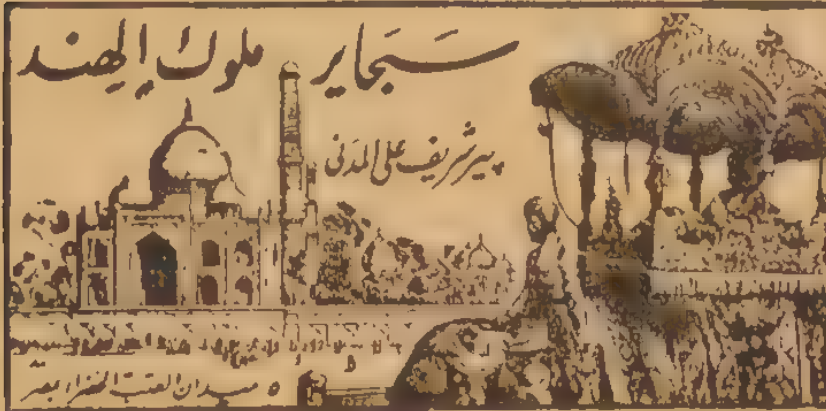 سجاير ملوك الهند
پير شريف علي المدني
٥ ميدان العتبة الخضراء بمصر